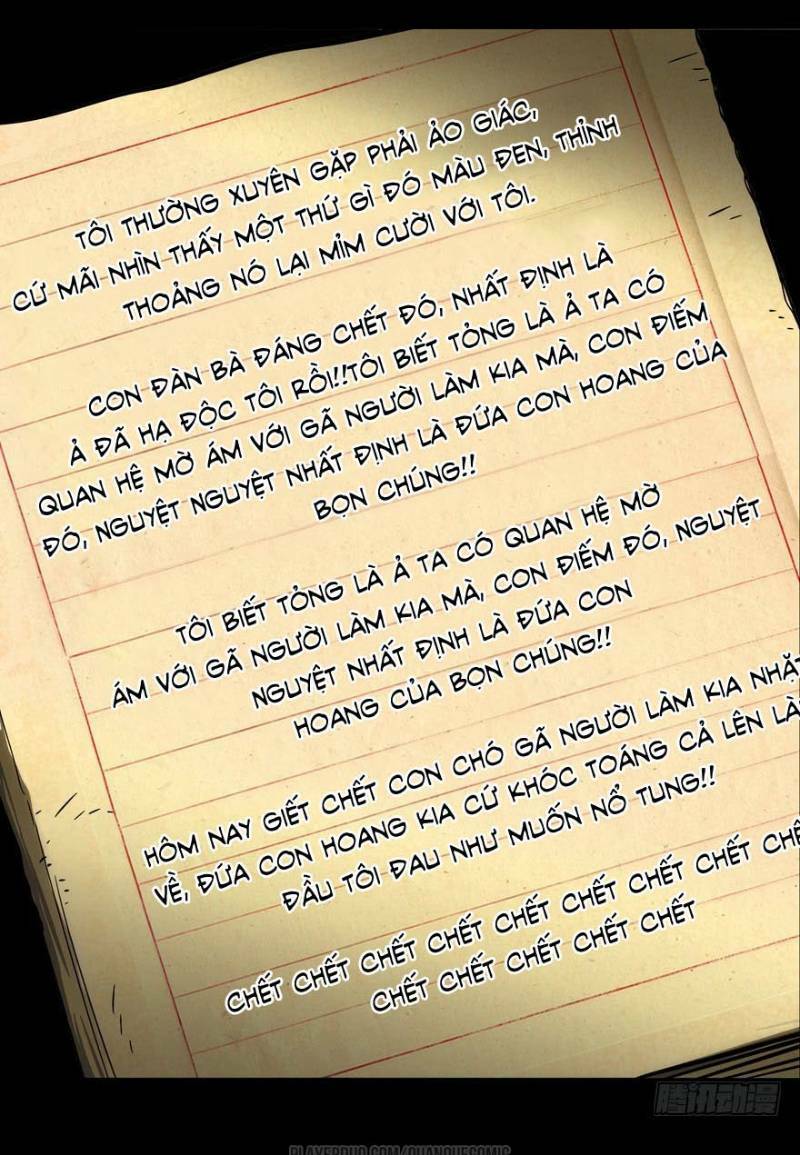 TÔI THƯỜNG XUYÊN GẶP PHẢI ẢO GIÁC,
CỨ MÃI NHÌN THẤY MỘT THỨ GÌ ĐÓ MÀU ĐEN, THỈNH
THOẢNG NÓ LẠI MỈM CƯỜI VỚI TÔI.
CON ĐÀN BÀ ĐÁNG CHẾT ĐÓ, NHẤT ĐỊNH LÀ
Ả ĐÃ HẠ ĐỘC TÔI RỒI!!TÔI BIẾT TỎNG LÀ Ả TA CÓ
QUAN HỆ MỜ ÁM VỚI GÃ NGƯỜI LÀM KIA MÀ, CON ĐIẾM
ĐÓ, NGUYỆT NGUYỆT NHẤT ĐỊNH LÀ ĐỨA CON HOANG CỦA
BỌN CHÚNG!!
TÔI BIẾT TỎNG LÀ Ả TA CÓ QUAN HỆ MỜ
ÁM VỚI GÃ NGƯỜI LÀM KIA MÀ, CON ĐIẾM ĐÓ, NGUYỆT
NGUYỆT NHẤT ĐỊNH LÀ ĐỨA CON
HOANG CỦA BỌN CHÚNG!!
HÔM NAY GIẾT CHẾT CON CHÓ GÃ NGƯỜI LÀM KIA NHẶT
VỀ, ĐỨA CON HOANG KIA CỨ KHÓC TOÁNG CẢ LÊN LÀM
ĐẦU TÔI ĐAU NHƯ MUỐN NỔ TUNG!!
CHẾT CHẾT CHẾT CHẾT CHẾT CHẾT CHẾT CHẾT CHẾ
CHẾT CHẾT CHẾT CHẾT CHẾT
腾讯动漫
PLAYERDUO.COM/QUANQUECOMIC